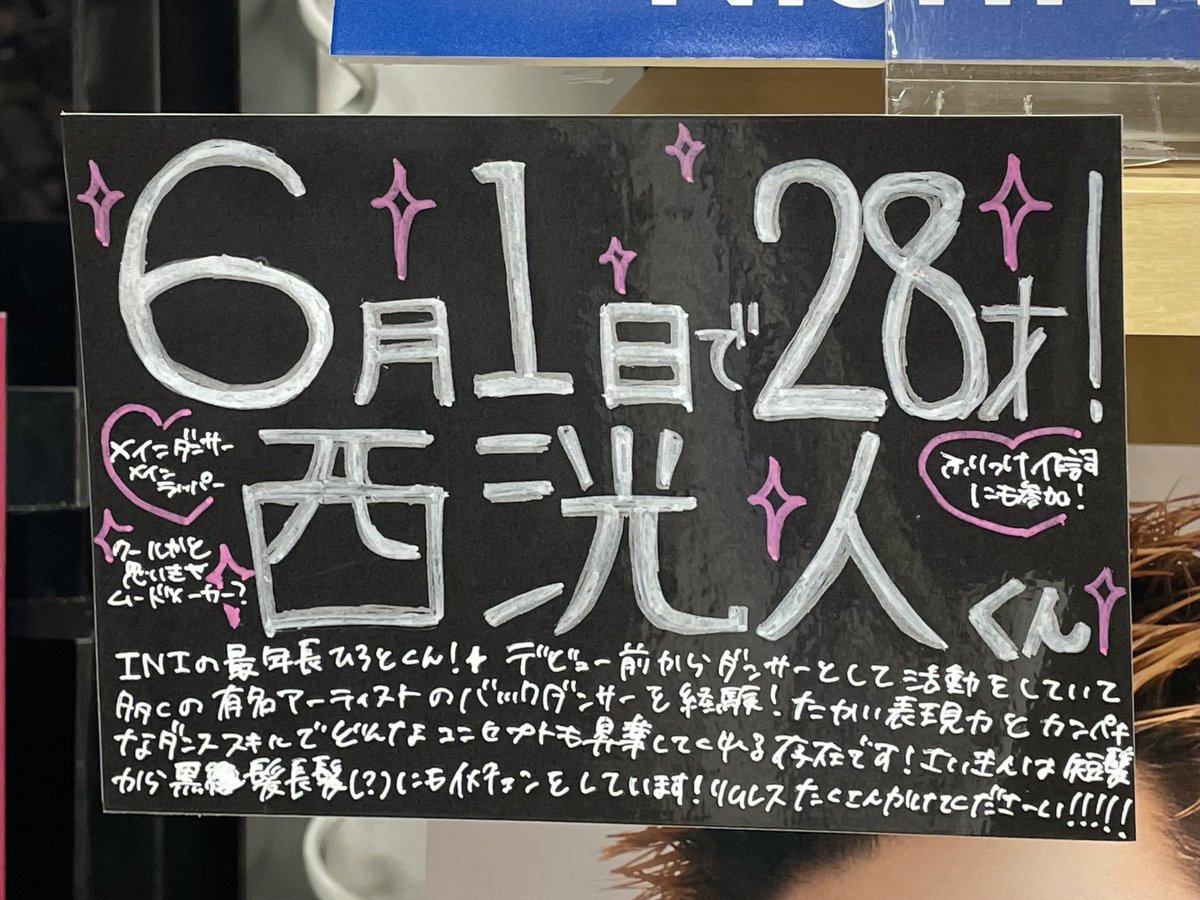 6月1日で28才!
メインダンサー
メイン
ラッパー
西洸人くん
ふりつけ作詞
にも参加!
クールかと
思いきや
ムードメーカー?
INIの最年長ひろとくん!+ デビュー前からダンサーとして活動をしていて
多くの有名アーティストのバックダンサーを経験!たかい表現力とカンペキ
なダンススキルでどんなコンセプトも昇華してくれる存在です!さい近は短髪
から黒髪長髪(?)にもイメチェンをしています!リムレスたくさんかけてくださーい!!!!!